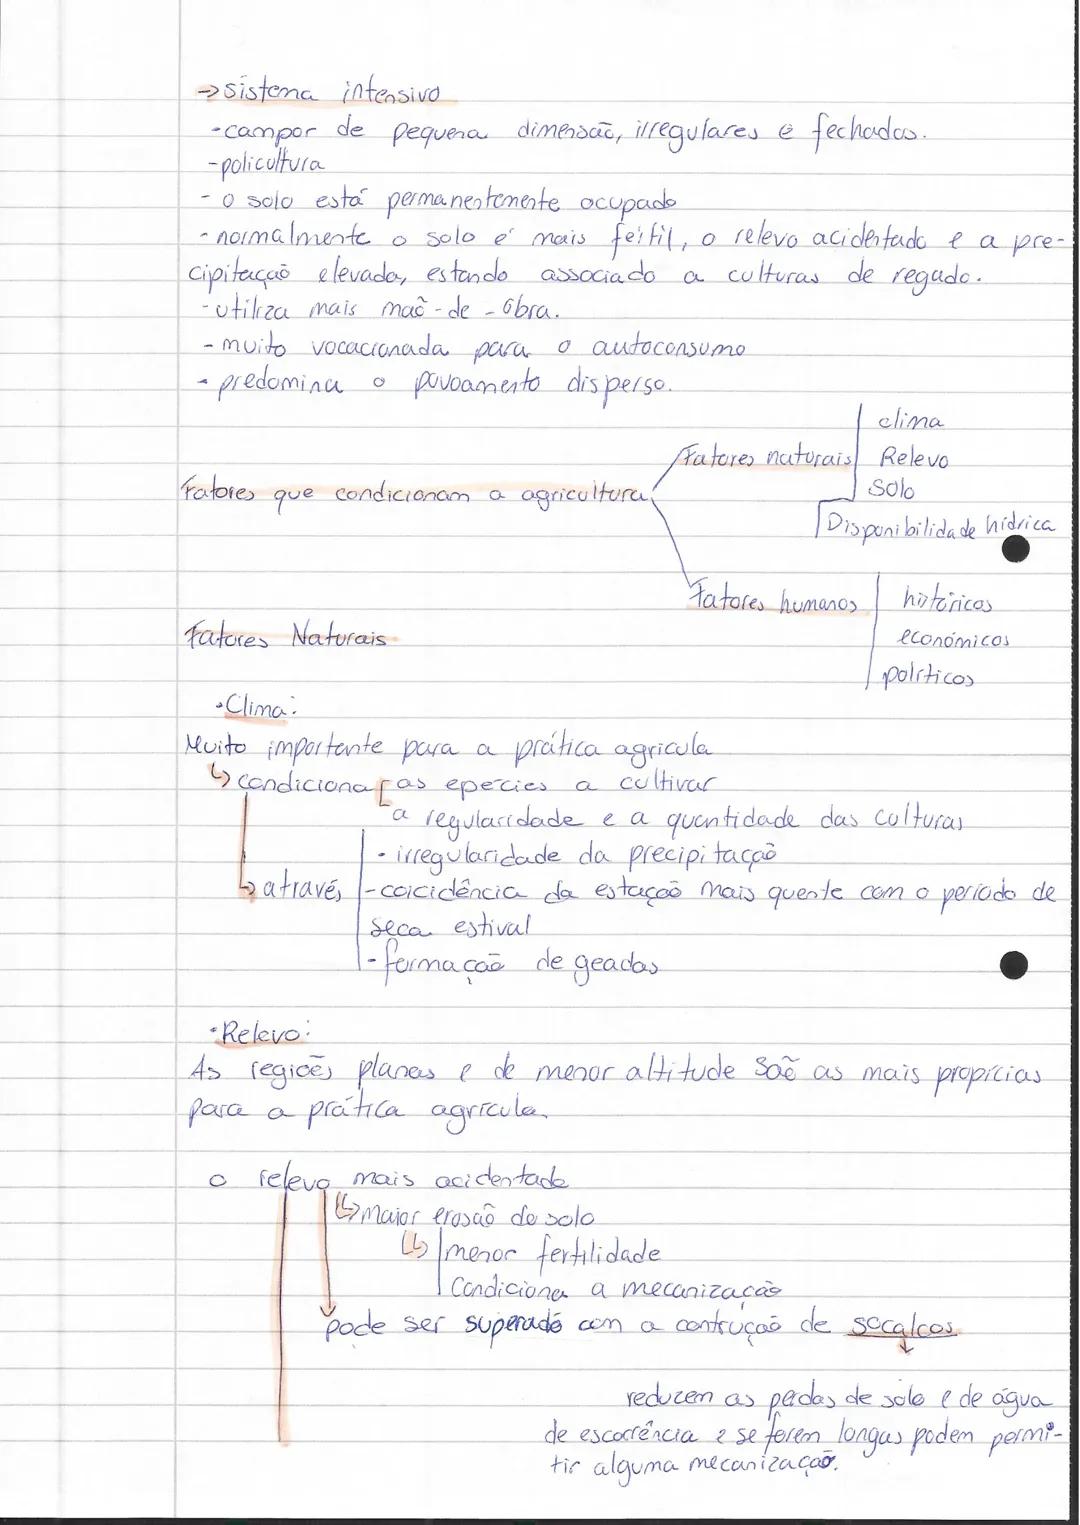 → sistema intensivo
- campor de pequena dimensão, irregulares e fechados.
- policultura
- o solo está permanentemente ocupado
- normalmente o solo é mais fértil, o relevo acidentado e a pre-
cipitação elevada, estando associado a culturas de regado.
- utiliza mais mão-de-obra.
- muito vocacionada para o autoconsumo
- predomina o povoamento disperso.
Fatores que condicionam a agricultura
Fatores naturais
clima
Relevo
Solo
Disponibilidade hídrica
Fatores humanos
históricos
económicos
políticos
Fatores Naturais
• Clima:
Muito importante para a prática agricula
↳ condiciona [as epecies a cultivar
a regularidade e a quantidade das culturas
↳ através
- irregularidade da precipitação
- coicidência da estação mais quente com o período de
seca estival
- formação de geadas
• Relevo:
As regiões planas e de menor altitude são as mais propícias
para a prática agrícula.
o relevo mais acidentado
↳ maior erosão do solo
↳ menor fertilidade
Condiciona a mecanização
pode ser superado com a contrução de socalcos
reduzem as perdas de solo e de água
de escorrência e se forem longas podem permi-
tir alguma mecanização.